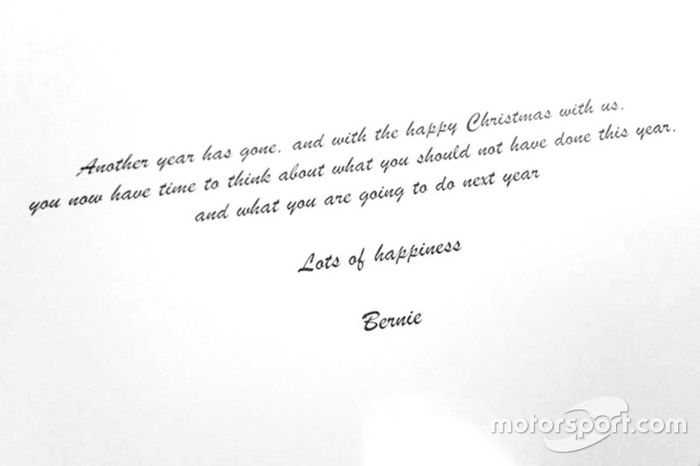 Another year has gone, and with the happy Christmas with us,
you now have time to think about what you should not have done this year,
and what you are going to do next year
Lots of happiness
Bernie
motorsport.com